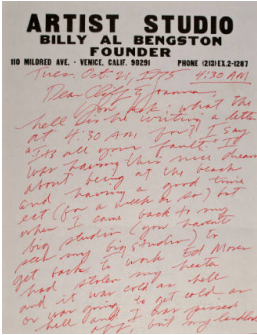 ARTIST STUDIO
BILLY AL BENGSTON
FOUNDER
110 MILDRED AVE. · VENICE, CALIF. 90291 PHONE (213) EX. 2-1287
Tues. Oct. 21, 1975 4:30 AM
Dear Cliff & Joanna,
Don't ask: what the
hell is he writing a letter
at 4:30 AM for? I say
"It's all your fault" I
was having this nice dream
about being at the beach
and having a good time
ect (for a week or so) but
when I came back to my
big studio (you havent
seen my big studio) to
get back to work Ed Moses
had stolen my heater
and it was cold as hell
or was going to get cold as
hell and I was pissed
off, but my landlord